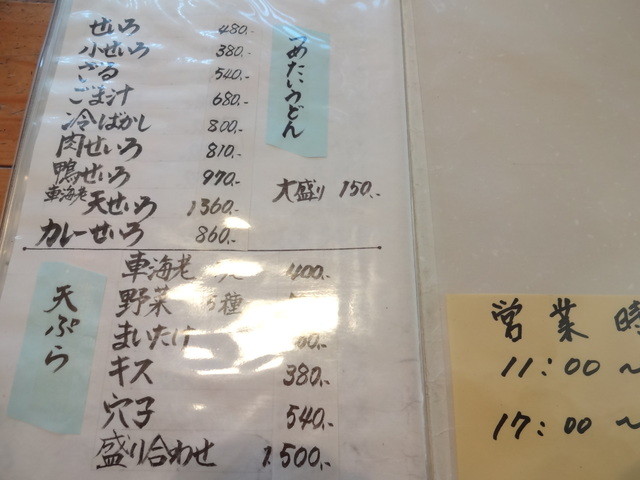 つめたいうどん
せいろ 480.-
小せいろ 380.-
ざる 540.-
ごま汁 680.-
冷ばかし 800.-
肉せいろ 810.-
鴨せいろ 970.-
車海老天せいろ 1360.-
カレーせいろ 860.-
大盛り 150.-
天ぷら
車海老 400.-
野菜 5種
まいたけ
キス 380.-
穴子 540.-
盛り合わせ 1.500.-
営業時
11:00~
17:00~